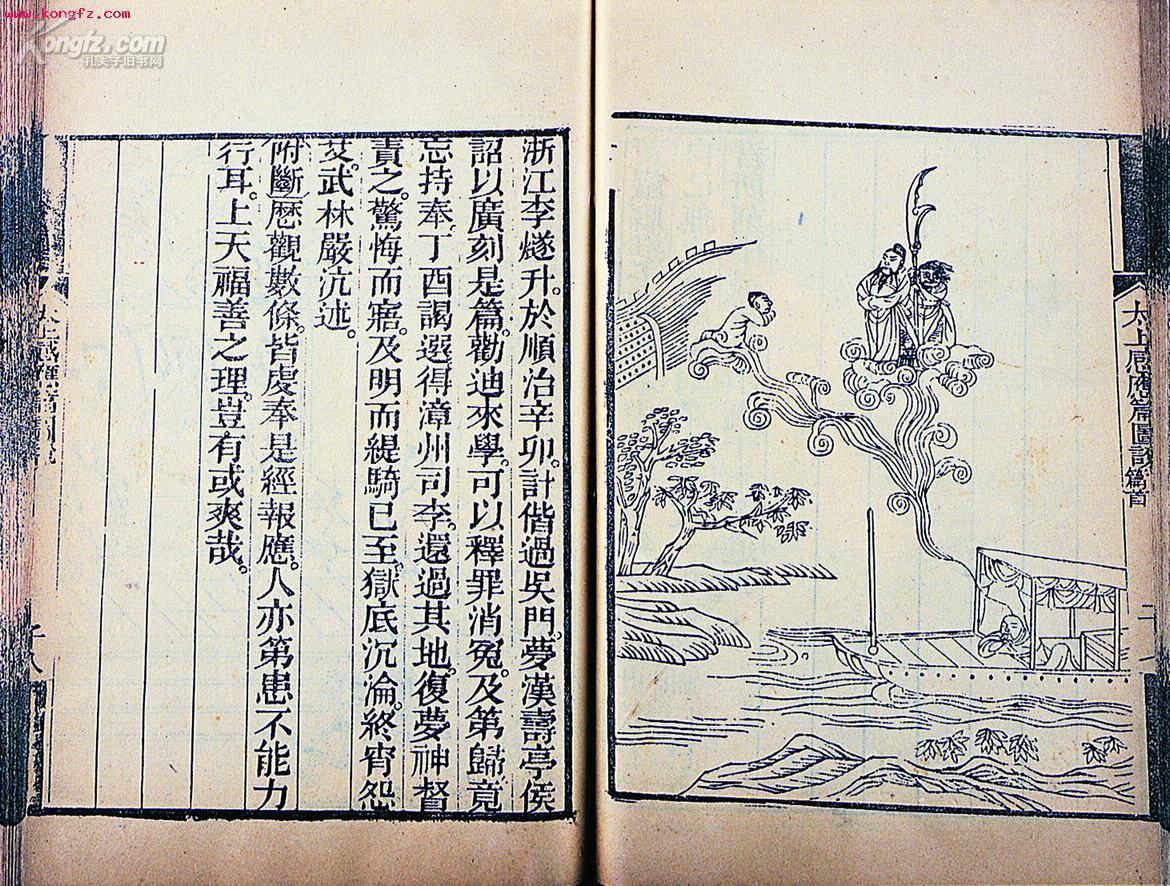 www.kongfz.com
Kongfz.com
孔夫子旧书网
太上感應篇圖說 篇首
浙江李燧升。於順治辛卯。計偕過吳門。夢漢壽亭侯
詔以廣刻是篇。勸迪來學。可以釋罪消冤。及第歸。竟
忘持奉。丁酉謁選得漳州司李。還過其地。復夢神督
責之。驚悔而寤。及明而緹騎已至。獄底沉淪。終宵怨
艾。武林嚴沆述。
附斷 歷觀數條。皆虔奉是經報應。人亦第患不能力
行耳。上天福善之理。豈有或爽哉。